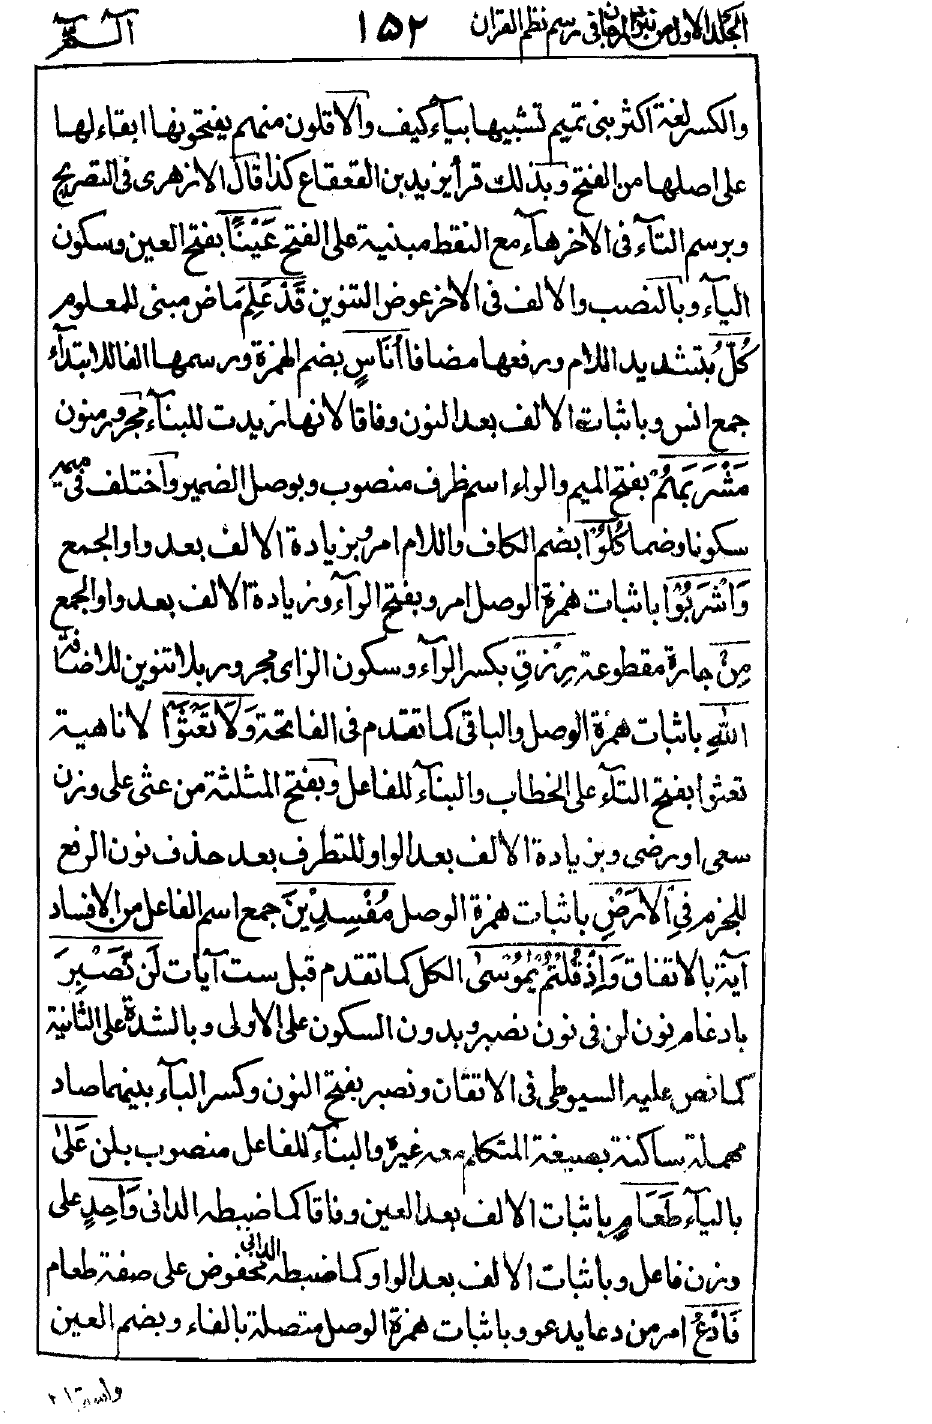 المجلد الاول من نثر المرجان في رسم نظم القران
١٥٢
الٓـمّٓ
والكسر لغة اكثر بنى تميم تشبيها بيآء كيف والاقلون منهم يفتحونها ابقاء لها
على اصلها من الفتح وبذلك قرأ يزيد بن القعقاع كذا قال الازهرى فى التصريح
وبرسم التآء فى الاخر هآء مع النقط مبنية على الفتح عَيْنًا بفتح العين وسكون
اليآء وبالنصب والالف فى الاخر عوض التنوين قَدْ عَلِمَ ماض مبنى للمعلوم
كُلُّ بتشديد اللام ورفعها مضافا أُنَاسٍ بضم الهمزة ورسمها الفا للابتدآء
جمع انس وباثبات الالف بعد النون وفاقا لانها زيدت للبنآء مجرور منون
مَشْرَبَهُمْ بفتح الميم والراء اسم ظرف منصوب وبوصل الضمير واختلف فى ميمه
سكونا وضما كُلُوْا بضم الكاف واللام امر وبزيادة الالف بعد واو الجمع
وَاشْرَبُوْا باثبات همزة الوصل امر وبفتح الرآء وزيادة الالف بعد واو الجمع
مِنْ جارة مقطوعة رِزْقِ بكسر الرآء وسكون الزاى مجرور بلا تنوين للاضافة
اللهِ باثبات همزة الوصل والباقى كما تقدم فى الفاتحة وَلَا تَعْثَوْا لا ناهية
تعثوا بفتح التآء على الخطاب والبنآء للفاعل وبفتح المثلثة من عثى على وزن
سعى او رضى وبزيادة الالف بعد الواو للتطرف بعد حذف نون الرفع
للجزم فِي الْاَرْضِ باثبات همزة الوصل مُفْسِدِيْنَ جمع اسم الفاعل من الافساد
آية بالاتفاق وَاِذْ قُلْتُمْ يٰمُوْسٰى الكل كما تقدم قبل ست آيات لَنْ نَّصْبِرَ
بادغام نون لن فى نون نصبر وبدون السكون على الاولى وبالشدة على الثانية
كما نص عليه السيوطى فى الاتقان ونصبر بفتح النون وكسر البآء بينهما صاد
مهملة ساكنة بصيغة المتكلم معه غيره والبنآء للفاعل منصوب بلن عَلٰى
باليآء طَعَامٍ باثبات الالف بعد العين وفاقا كما ضبطه الدانى وَاحِدٍ على
وزن فاعل وباثبات الالف بعد الواو كما ضبطه الدانى مخفوض على صفة طعام
فَادْعُ امر من دعا يدعو وباثبات همزة الوصل متصلة بالفاء وبضم العين